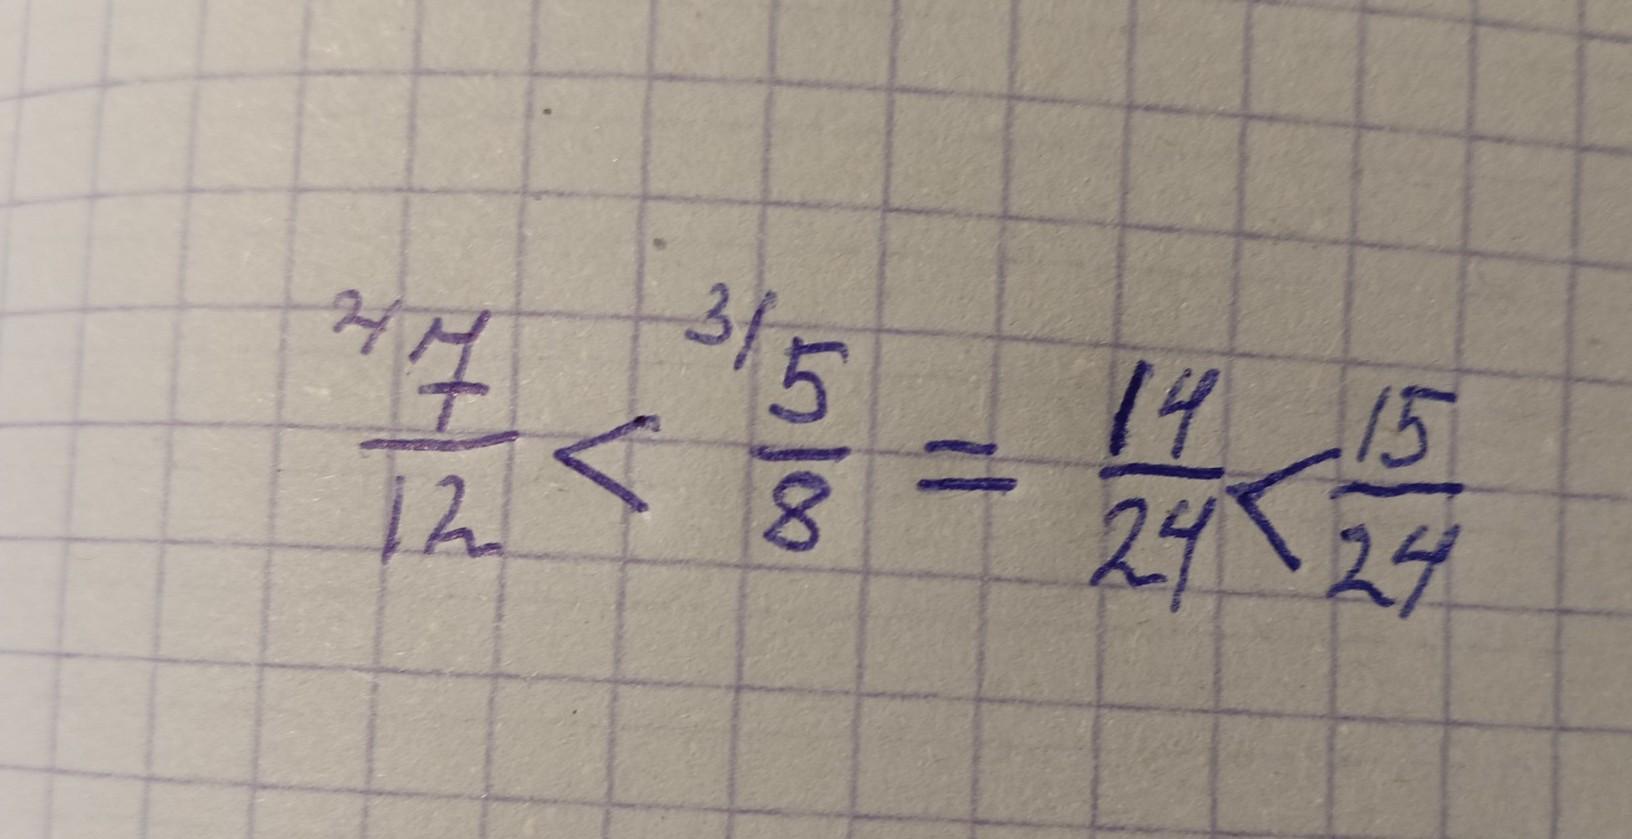 ²⁄ 7/12 < ³⁄ 5/8 = 14/24 < 15/24